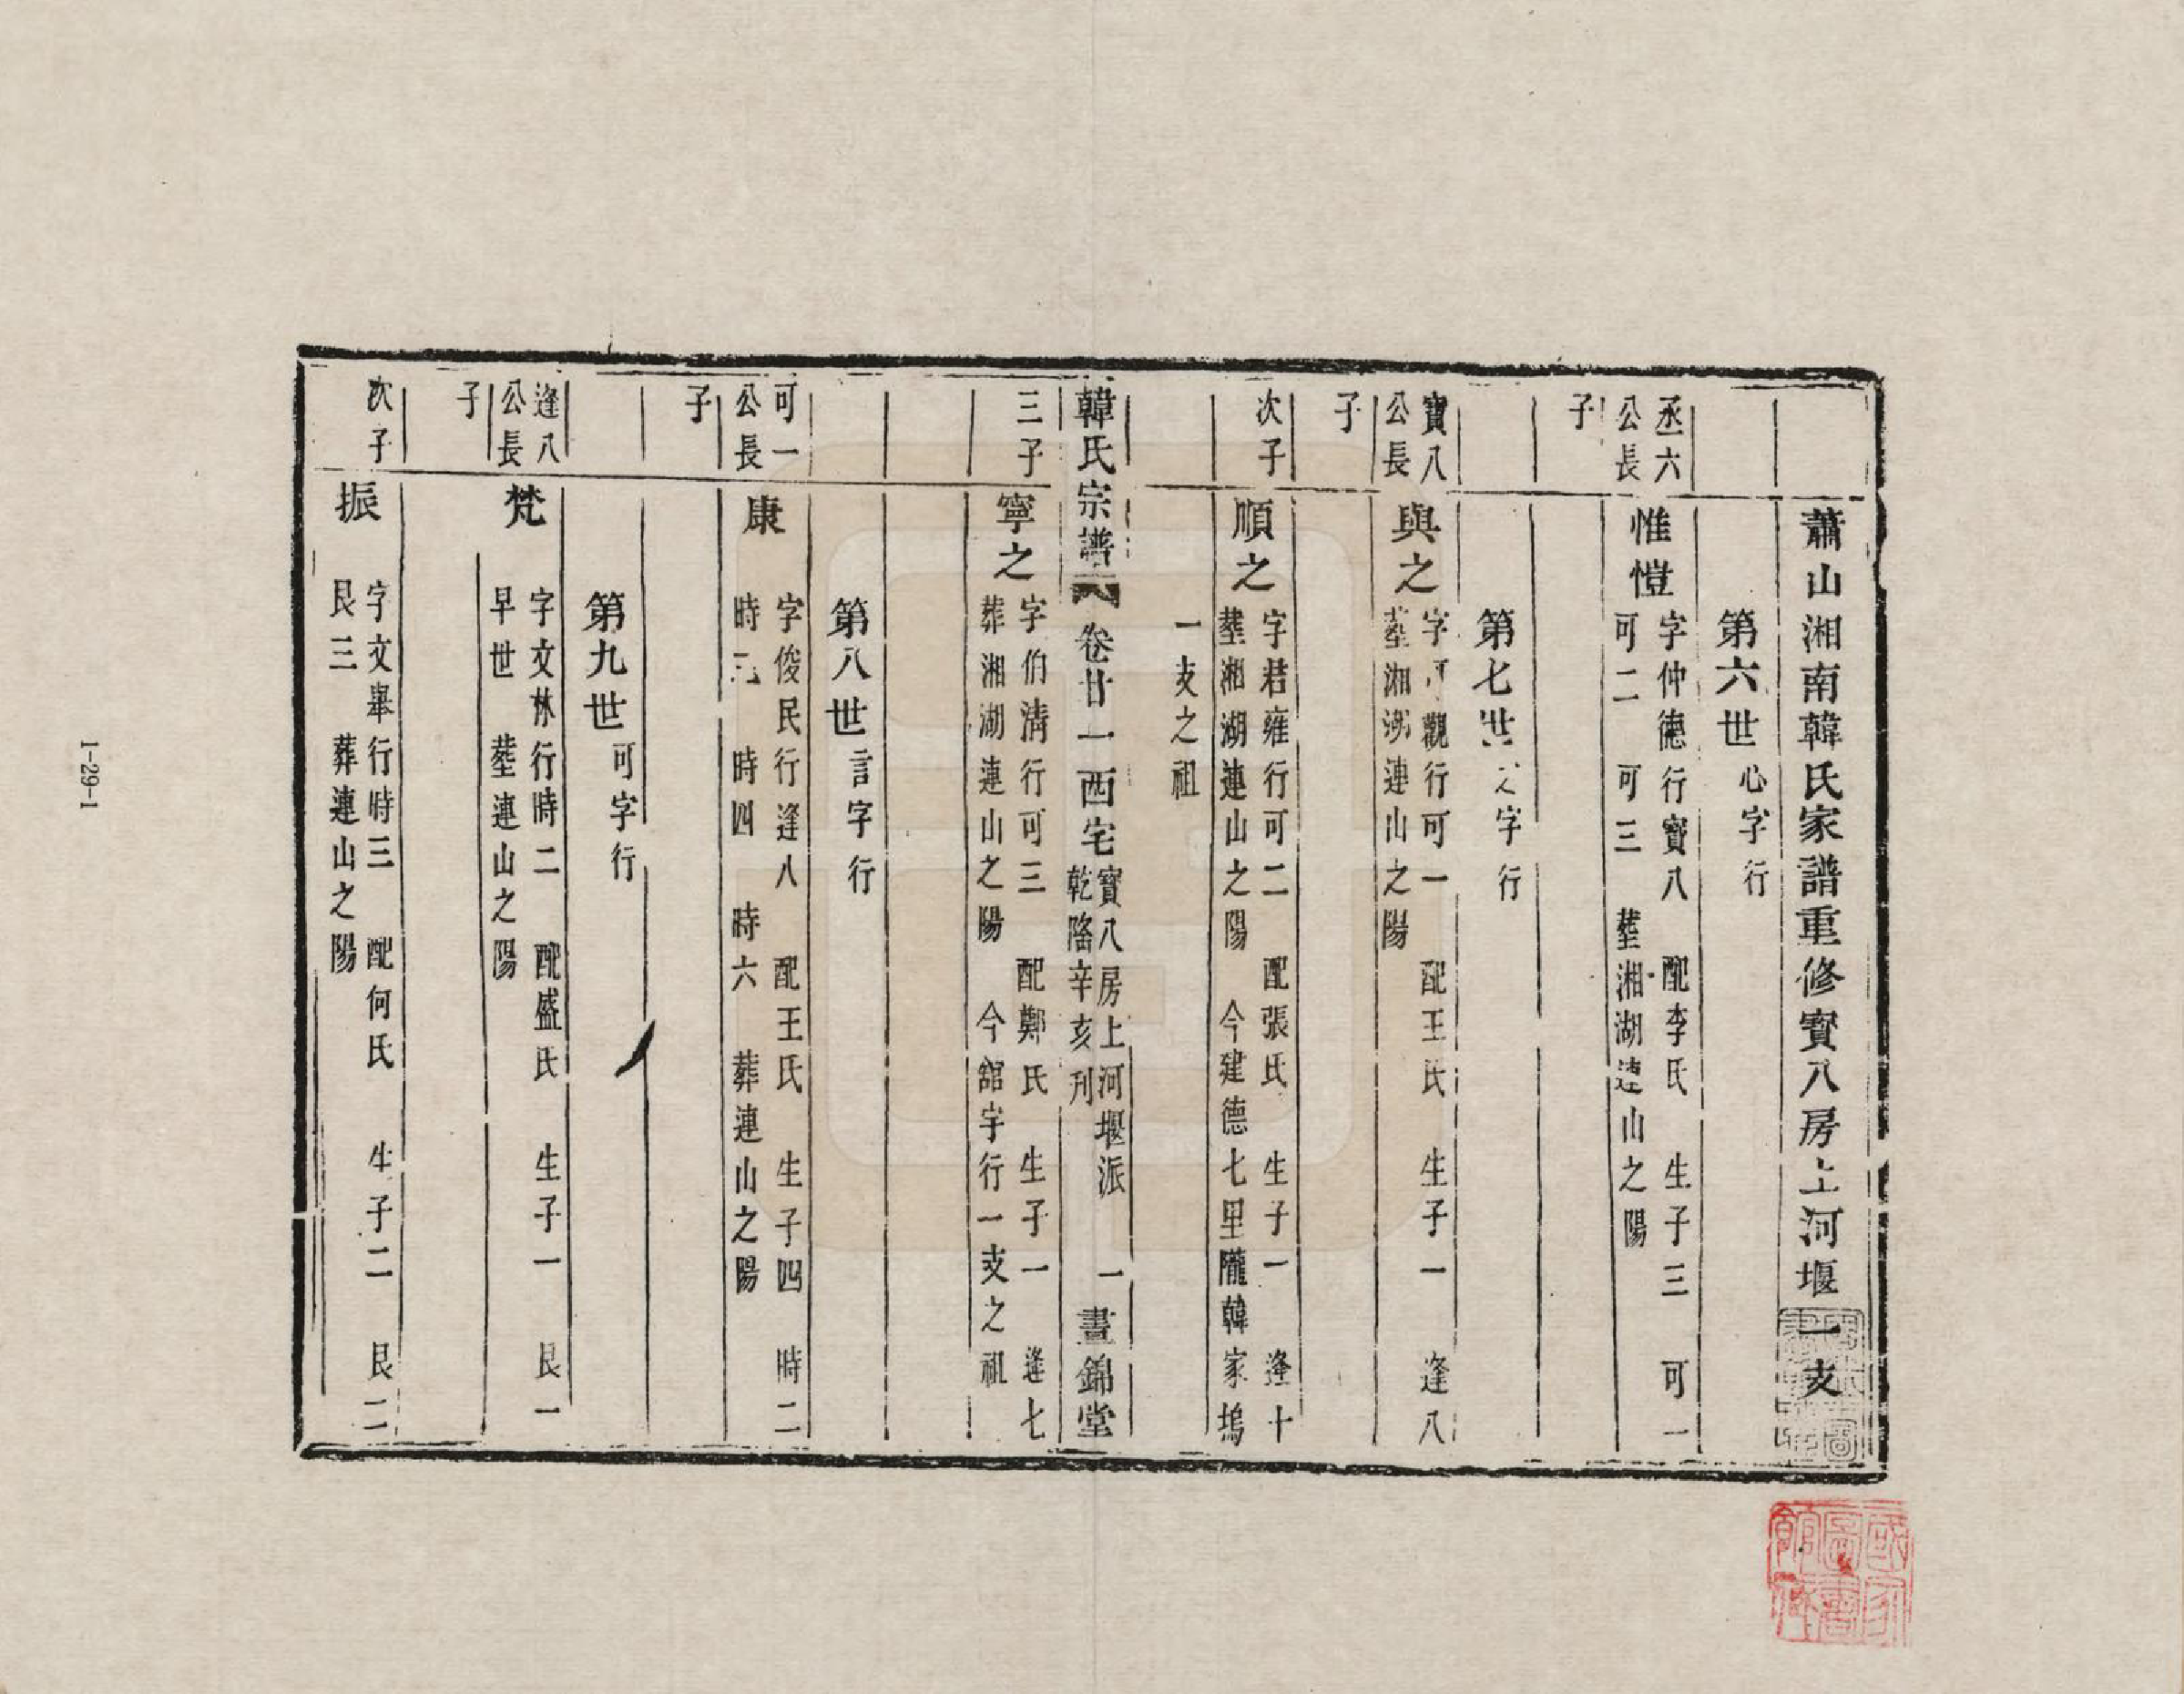 蕭山湘南韓氏家譜重修寳八房上河堰一支
第六世心字行
丞六公長子
惟愷
字仲德行寳八　配李氏　生子三　可一
可二　可三　塟湘湖連山之陽
第七世之字行
寳八公長子
與之
字可觀行可一　配王氏　生子一　逢八
塟湘湖連山之陽
次子
順之
字君雍行可二　配張氏　生子一　逢十
塟湘湖連山之陽　今建德七里隴韓家塢
一支之祖
韓氏宗譜　卷廿一西宅
寳八房上河堰派
乾隆辛亥刋
一
晝錦堂
三子
寧之
字伯淸行可三　配鄭氏　生子一　逢七
葬湘湖連山之陽　今舘宇行一支之祖
第八世言字行
可一公長子
康
字俊民行逢八　配王氏　生子四　時二
時三　時四　時六　葬連山之陽
第九世可字行
逢八公長子
梵
字文林行時二　配盛氏　生子一　艮一
早世　塟連山之陽
次子
振
字文舉行時三　配何氏　生子二　艮二
艮三　葬連山之陽
1-29-1